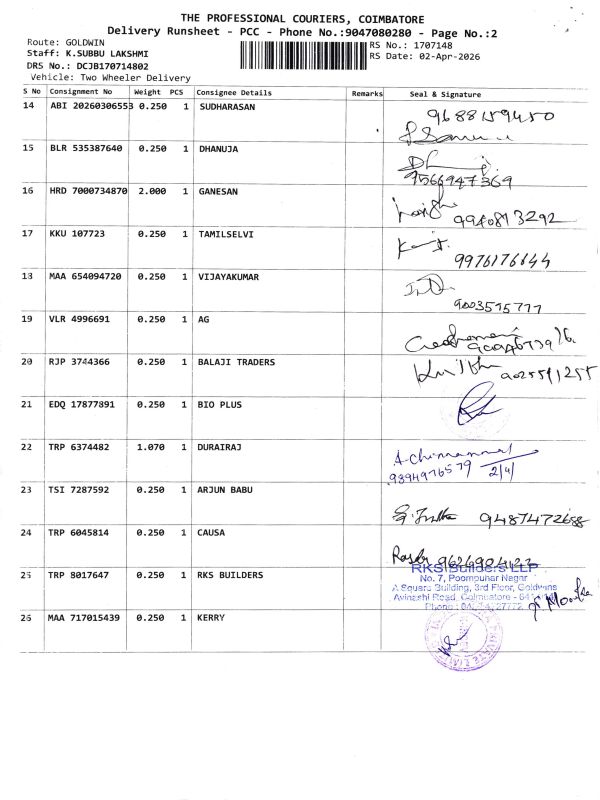 THE PROFESSIONAL COURIERS, COIMBATORE
Delivery Runsheet - PCC - Phone No.:9047080280 - Page No.:2
Route: GOLDWIN
Staff: K.SUBBU LAKSHMI
DRS No.: DCJB170714802
Vehicle: Two Wheeler Delivery
RS No.: 1707148
RS Date: 02-Apr-2026
S No Consignment No Weight PCS Consignee Details Remarks Seal & Signature
14 ABI 20260306553 0.250 1 SUDHARASAN 9688159450
15 BLR 535387640 0.250 1 DHANUJA
9566947369
16 HRD 7000734870 2.000 1 GANESAN
9940813292
17 KKU 107723 0.250 1 TAMILSELVI
9976176644
18 MAA 654094720 0.250 1 VIJAYAKUMAR
9003515777
19 VLR 4996691 0.250 1 AG
20 RJP 3744366 0.250 1 BALAJI TRADERS
21 EDQ 17877891 0.250 1 BIO PLUS
22 TRP 6374482 1.070 1 DURAIRAJ
9394976579 2/4
23 TSI 7287592 0.250 1 ARJUN BABU
24 TRP 6045814 0.250 1 CAUSA
25 TRP 8017647 0.250 1 RKS BUILDERS
RKS Builders LLP
No. 7, Poompuhar Nagar
A Square Building, 3rd Floor, Goldwins
Avinashi Road, Coimbatore
Phone
26 MAA 717015439 0.250 1 KERRY